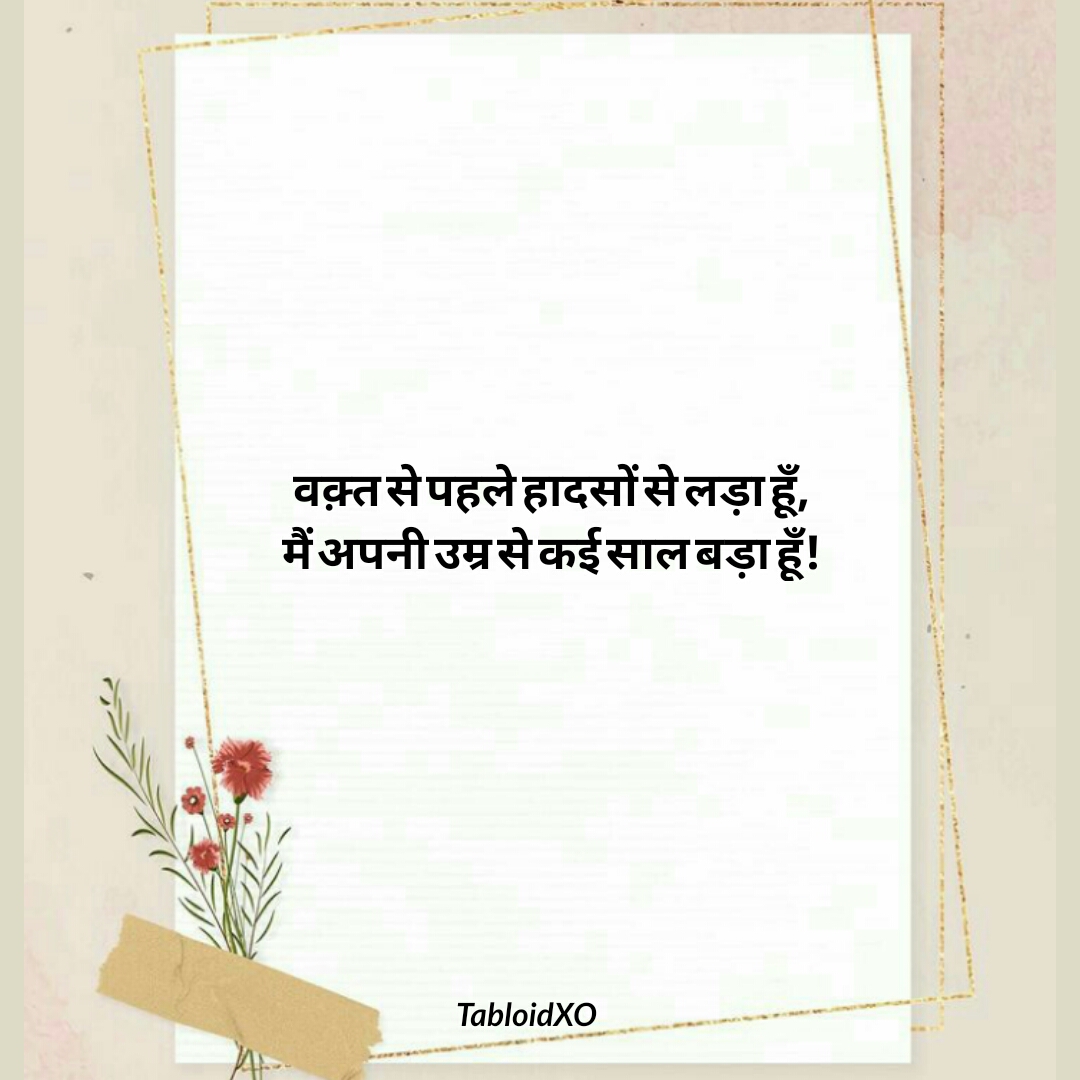 वक़्त से पहले हादसों से लड़ा हूँ,
मैं अपनी उम्र से कई साल बड़ा हूँ!
TabloidXO